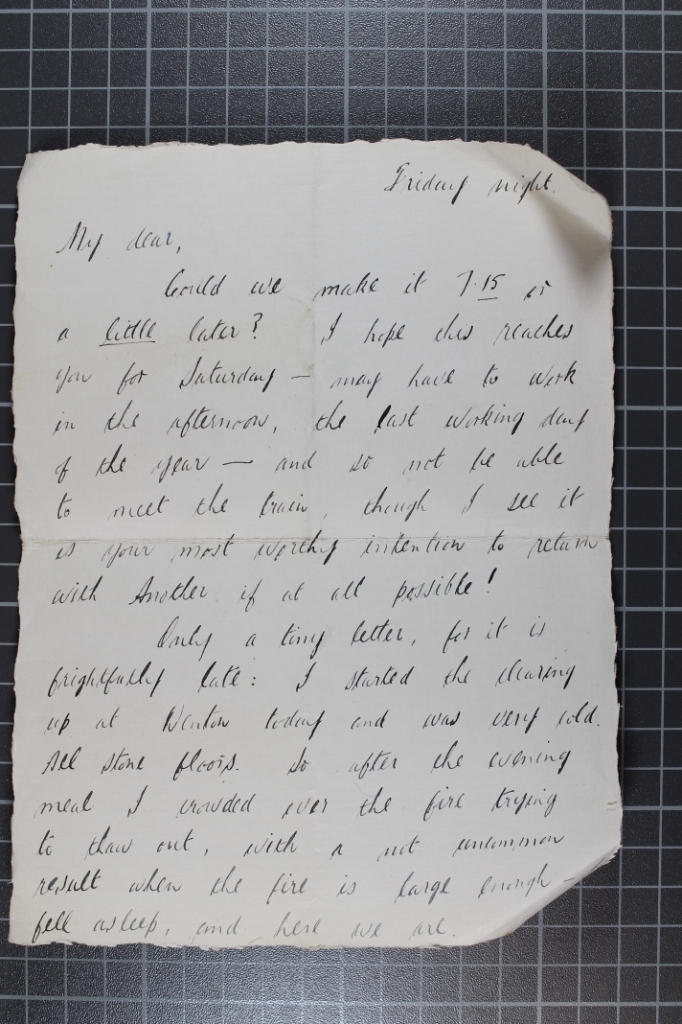 Friday night.
My dear,
Could we make it 7.15 or
a little later? I hope this reaches
you for Saturday – may have to work
in the afternoon, the last working day
of the year – and so not be able
to meet the train, though I see it
is your most worthy intention to return
with Another if at all possible!
Only a tiny letter, for it is
frightfully late: I started the clearing
up at Wenton today and was very cold.
All stone floors. So after the evening
meal I crowded over the fire trying
to thaw out, with a not uncommon
result when the fire is large enough –
fell asleep, and here we are.